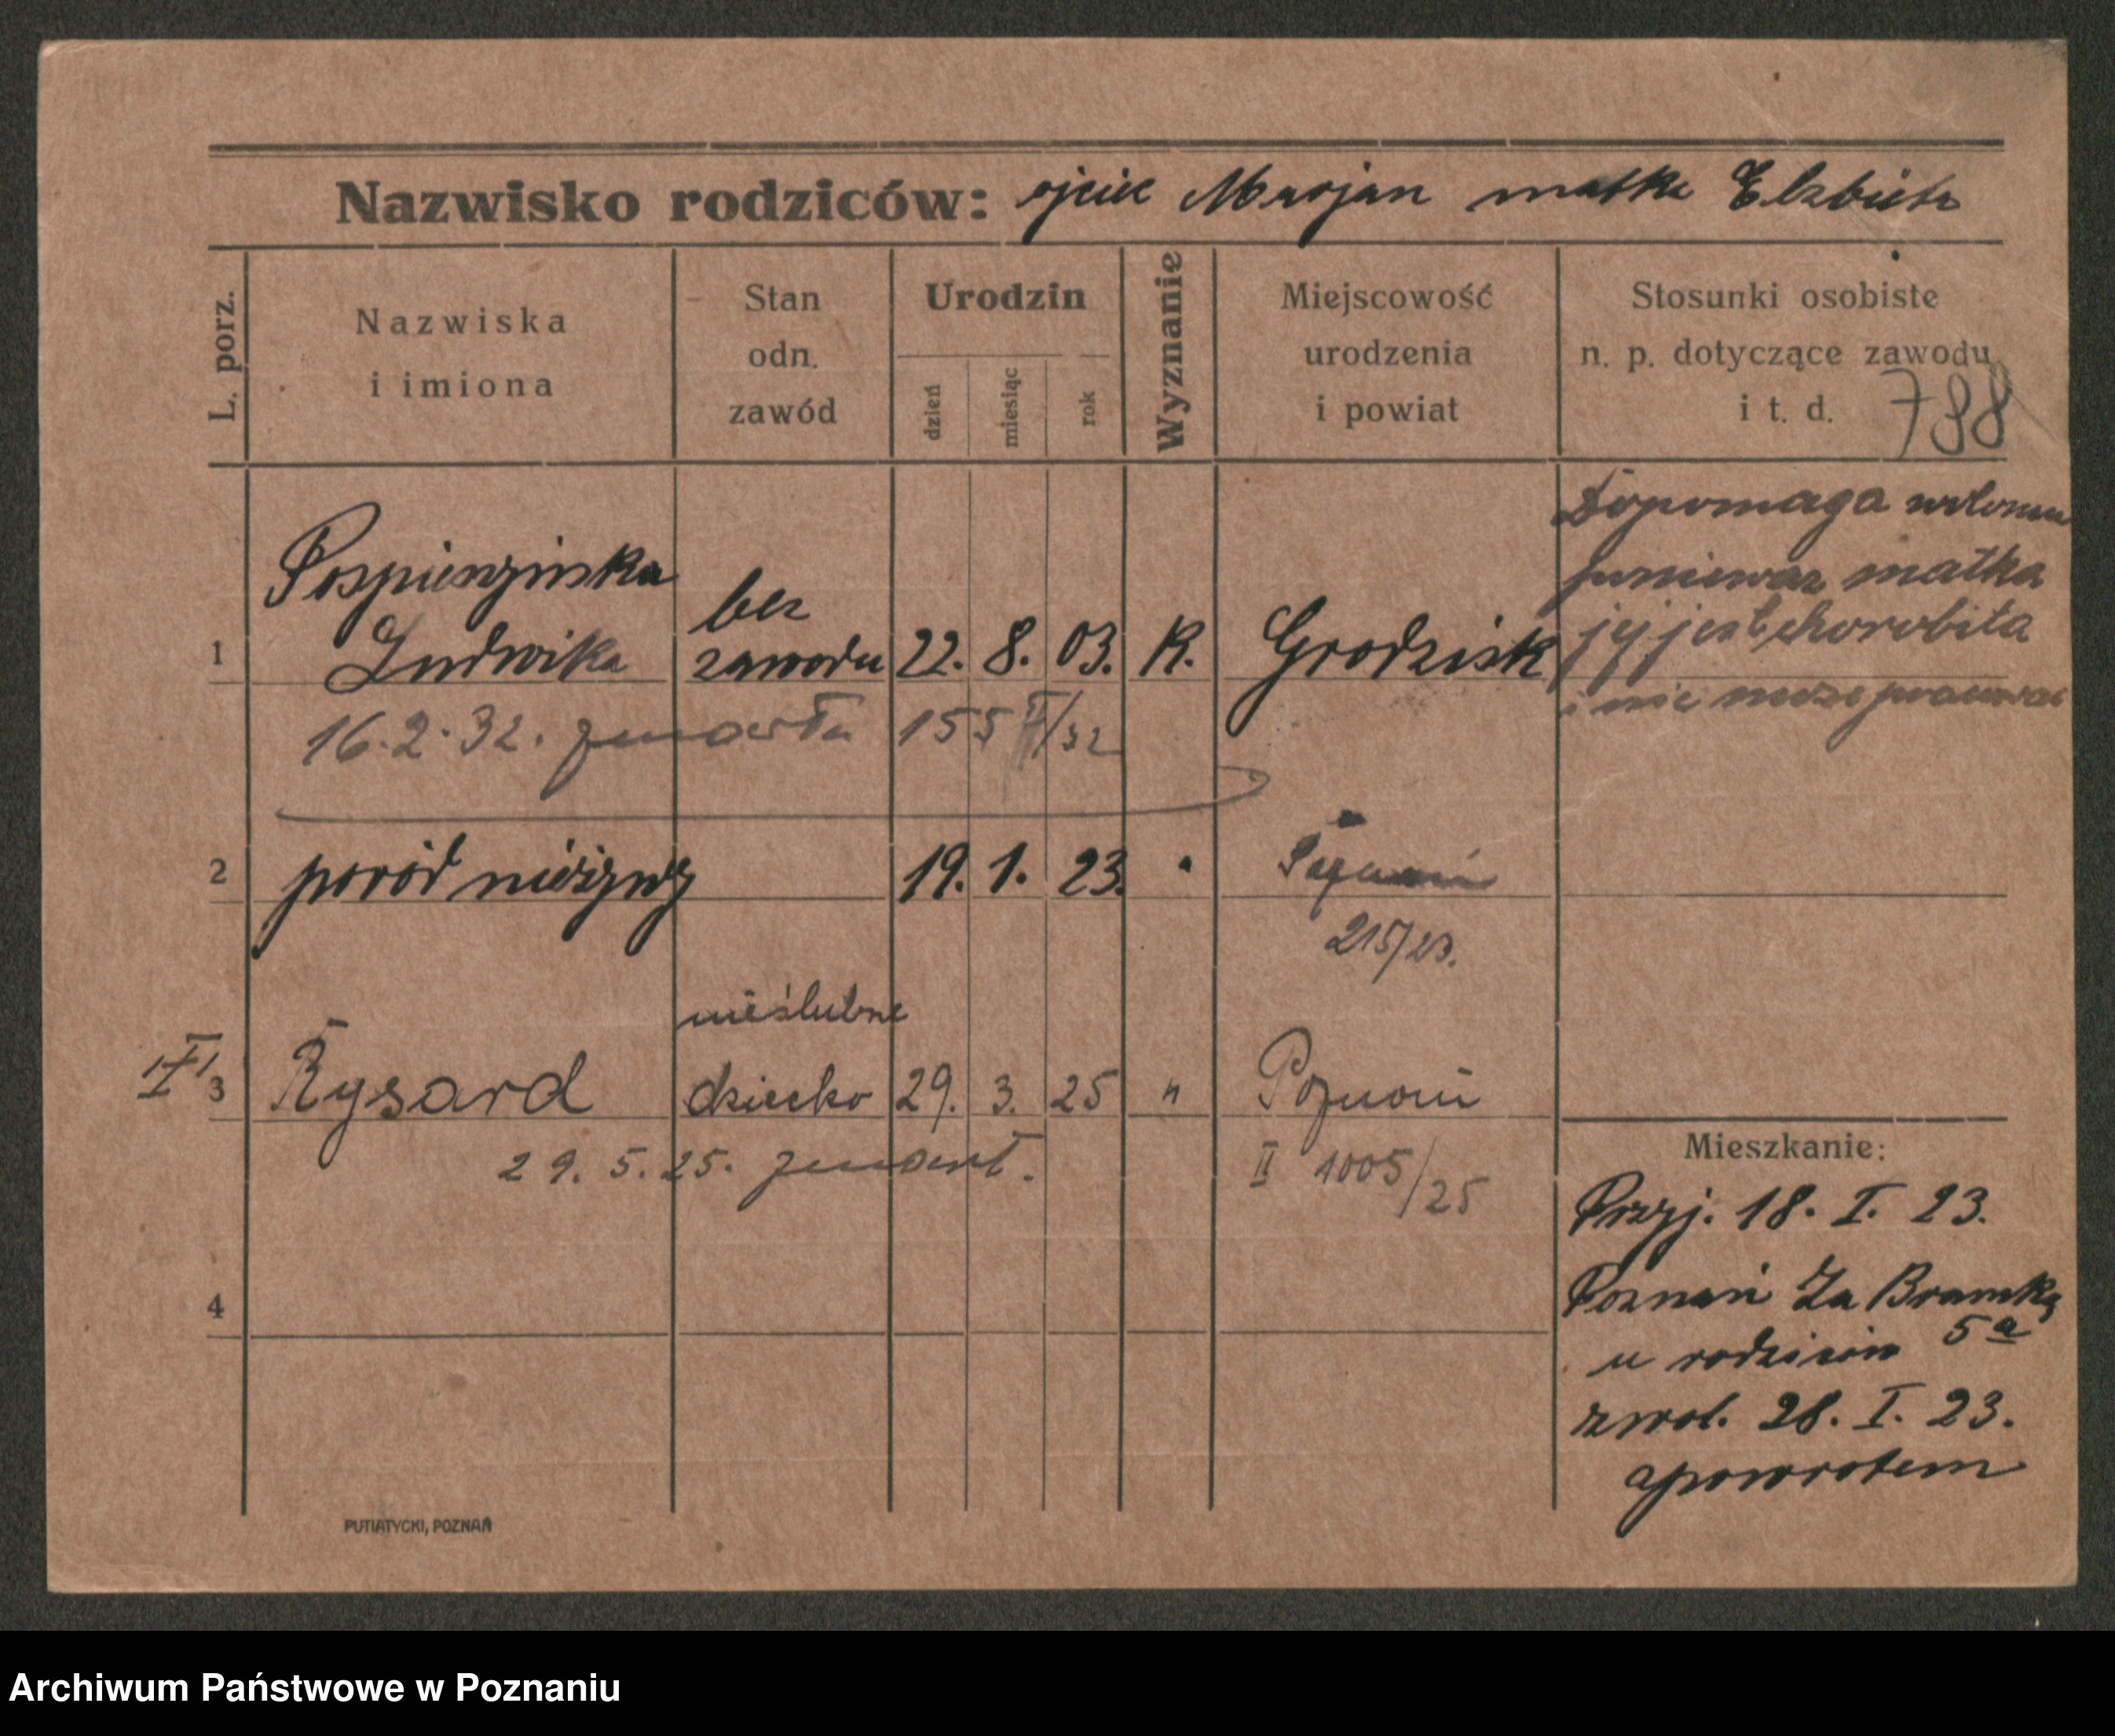 Nazwisko rodziców: ojciec Marjan matka Elzbieta
L. porz.
Nazwiska
i imiona
Stan
odn.
zawód
Urodzin
dzień
miesiąc
rok
Wyznanie
Miejscowość
urodzenia
i powiat
Stosunki osobiste
n. p. dotyczące zawodu
i t. d.
798
1 Pospieszyńska
Ludwika
bez
zawodu
22. 8. 03. K. Grodzisk
Dopomaga w domu
ponieważ matka
jej jest chorobita
i nie może pracować
16.2.32. zmarła 155 /32
2 poród nieżywy 19. 1. 23. " Poznań
215/23.
3 Rysard
nieślubne
dziecko
29. 3. 25 " Poznań
29. 5. 25. zmarł.
II 1005/25
4
Mieszkanie:
Przyj. 18. I. 23.
Poznań Za Bramką
5a
u rodziców
zwol. 28. I. 23.
zpowrotem
PUTIATYCKI, POZNAŃ
Archiwum Państwowe w Poznaniu